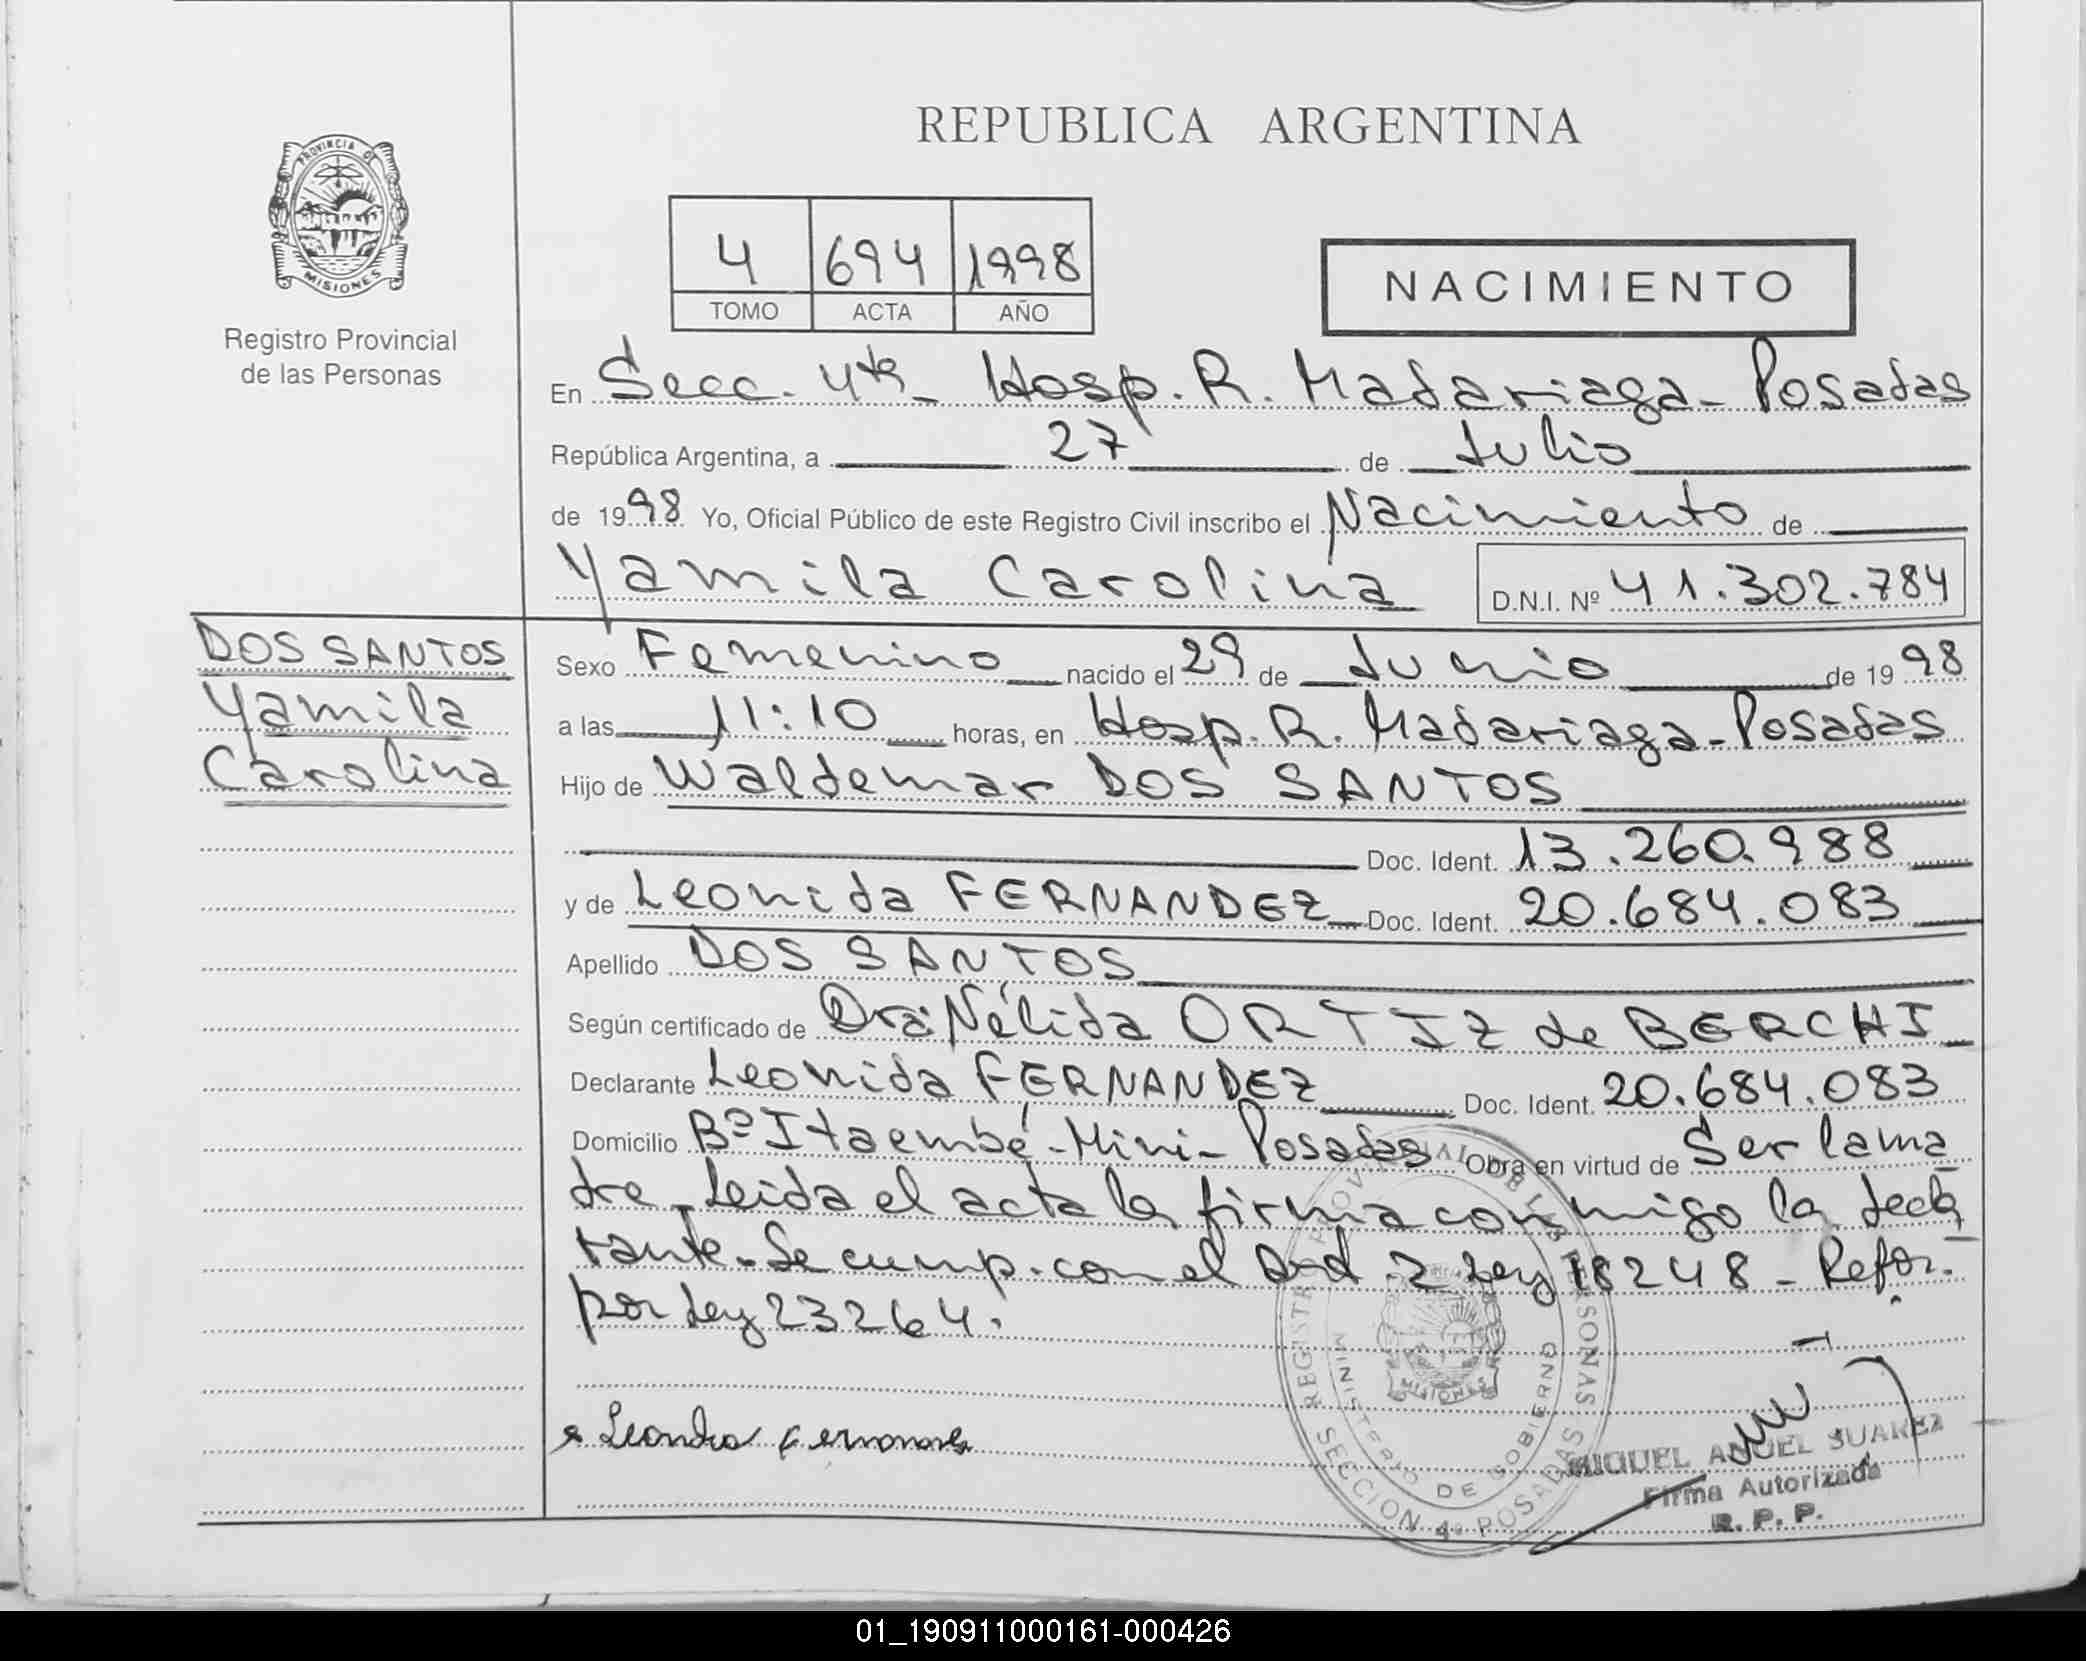 REPUBLICA ARGENTINA
PROVINCIA DE
MISIONES
Registro Provincial
de las Personas
4 694 1998
TOMO ACTA AÑO
NACIMIENTO
En Secc. 4ta - Hosp. R. Madariaga - Posadas
República Argentina, a 27 de Julio
de 1998 Yo, Oficial Público de este Registro Civil inscribo el Nacimiento de
Yamila Carolina D.N.I. Nº 41.302.784
DOS SANTOS
Yamila
Carolina
Sexo Femenino nacido el 29 de Junio de 1998
a las 11:10 horas, en Hosp. R. Madariaga - Posadas
Hijo de Waldemar DOS SANTOS
Doc. Ident. 13.260.988
y de Leonida FERNANDEZ Doc. Ident. 20.684.083
Apellido DOS SANTOS
Según certificado de Dra: Nélida ORTIZ de BERCHI
Declarante Leonida FERNANDEZ Doc. Ident. 20.684.083
Domicilio Bº Itaembé - Mini - Posadas Obra en virtud de Ser la ma
dre - Leida el acta la firma conmigo la decla
rante - Se cump. con el Art. 2 Ley 18248 - Refor.
por Ley 23264.
REGISTRO PROVINCIAL DE LAS PERSONAS
MINISTERIO DE GOBIERNO
MISIONES
SECCION 4º POSADAS
MIGUEL ANGEL SUAREZ
Firma Autorizada
R. P. P.
01_190911000161-000426